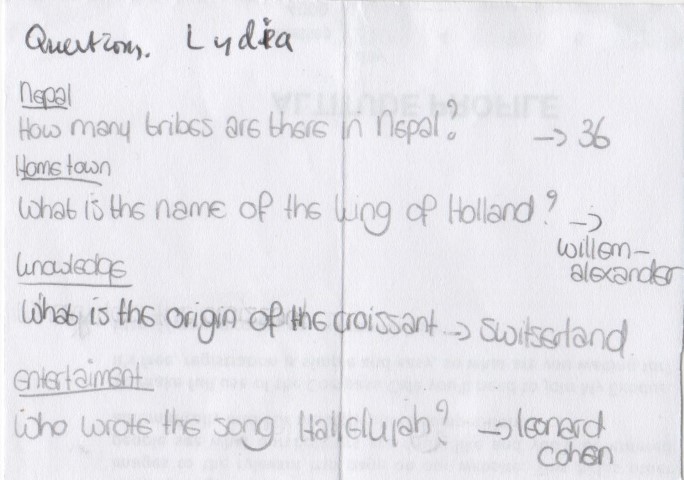 Questions. Lydia
Nepal
How many tribes are there in Nepal? -> 36
Hometown
What is the name of the king of Holland? ->
willem-
alexander
knowledge
What is the origin of the croissant -> switserland
entertaiment
Who wrote the song Hallelujah? -> leonard
cohen
ALTITUDE PROFILE